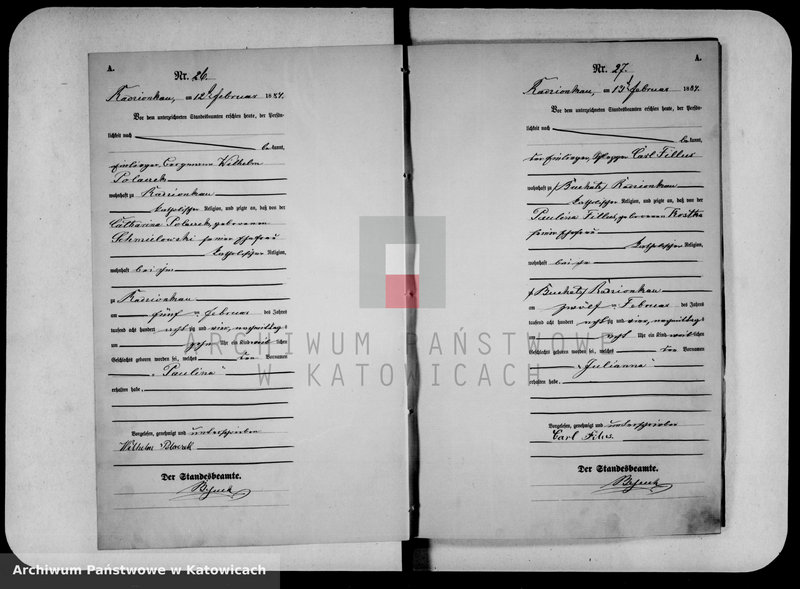 A.
Nr. 26.
Radzionkau, am 12t Februar 1884.
Vor dem unterzeichneten Standesbeamten erschien heute, der Persön-
lichkeit nach
bekannt,
Wilhelm
Polaczek
wohnhaft zu Radzionkau
katholischer Religion, und zeigte an, daß von der
Catharina Polaczek, geborenen
Schmielowski seiner Ehefrau
katholischer Religion,
wohnhaft bei ihm
zu Radzionkau
am fünf ten Februar des Jahres
tausend acht hundert acht zig und vier, nachmittags
um zehn Uhr ein Kind weib lichen
Geschlechts geboren worden sei, welches den Vornamen
„Paulina"
erhalten habe.
Vorgelesen, genehmigt und unterschrieben
Wilhelm Polaczek
Der Standesbeamte.
A.
Nr. 27.
Radzionkau, am 13t Februar 1884.
Vor dem unterzeichneten Standesbeamten erschien heute, der Persön-
lichkeit nach
bekannt,
der Carl Fillus
wohnhaft zu Radzionkau
katholischer Religion, und zeigte an, daß von der
Paulina Fillus, geborenen Kostka
seiner Ehefrau
katholischer Religion,
wohnhaft bei ihm
Radzionkau
am zwölf ten Februar des Jahres
tausend acht hundert acht zig und vier, nachmittags
um acht Uhr ein Kind weiblichen
Geschlechts geboren worden sei, welches den Vornamen
„Julianna"
erhalten habe.
Vorgelesen, genehmigt und unterschrieben
Carl Filus.
Der Standesbeamte.
ARCHIWUM PAŃSTWOWE
W KATOWICACH
Archiwum Państwowe w Katowicach